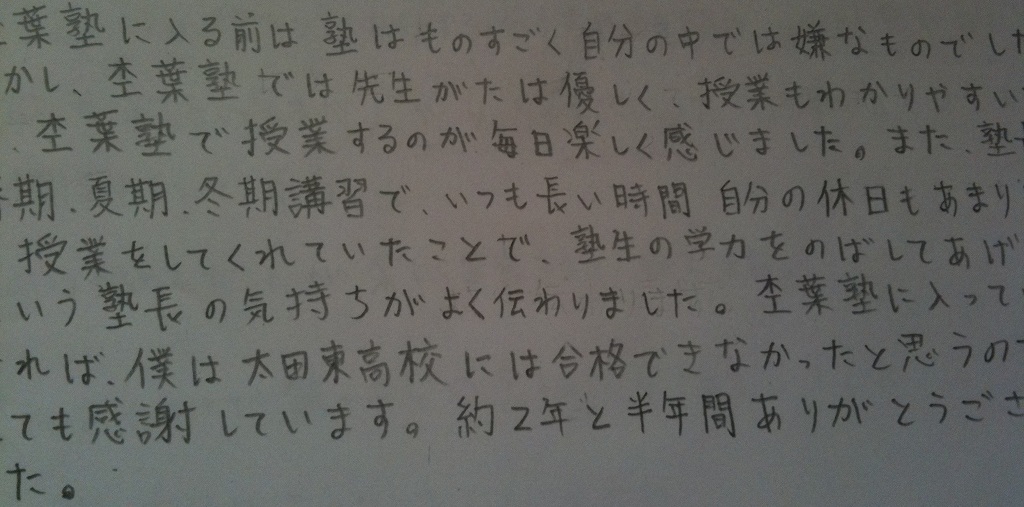 葉塾に入る前は塾はものすごく自分の中では嫌なものでした
かし、杢葉塾では先生がたは優しく、授業もわかりやすい
、杢葉塾で授業するのが毎日楽しく感じました。また、塾
期、夏期、冬期講習で、いつも長い時間 自分の休日もあまり
授業をしてくれていたことで、塾生の学力をのばしてあげ
いう塾長の気持ちがよく伝わりました。杢葉塾に入って
れば、僕は太田東高校には合格できなかったと思うの
ても感謝しています。約2年と半年間ありがとうござ
た。